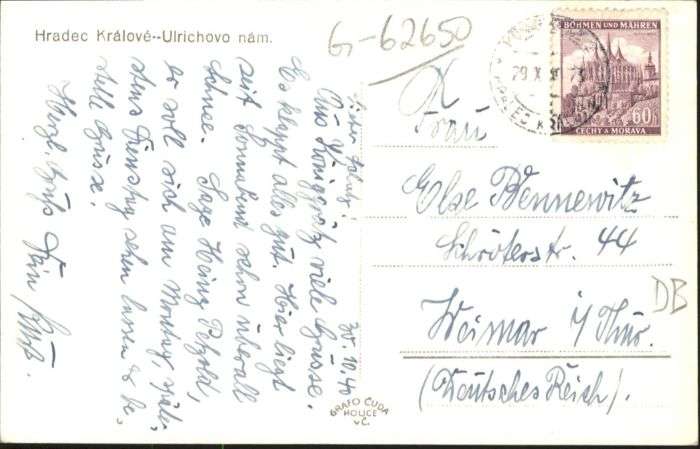 Hradec Králové--Ulrichovo nám.
G-62650
BÖHMEN UND MÄHREN
60
ČECHY A MORAVA
29 X
HRADEC KRÁ
30.10.40
Aus Königgrätz viele Grüsse.
Es klappt alles gut. Hier liegt
seit Sonnabend schon überall
Schnee. Sage Heinz Petzold,
er soll sich am Montag, späte-
stens Dienstag sehen lassen. Ich be-
stelle Grüsse.
Herzl. Gruß Dein
Frau
Else Bennewitz
Schröterstr. 44
Weimar i/Thür.
(Deutsches Reich).
DB
GRAFO ČUDA
HOLICE
v Č.